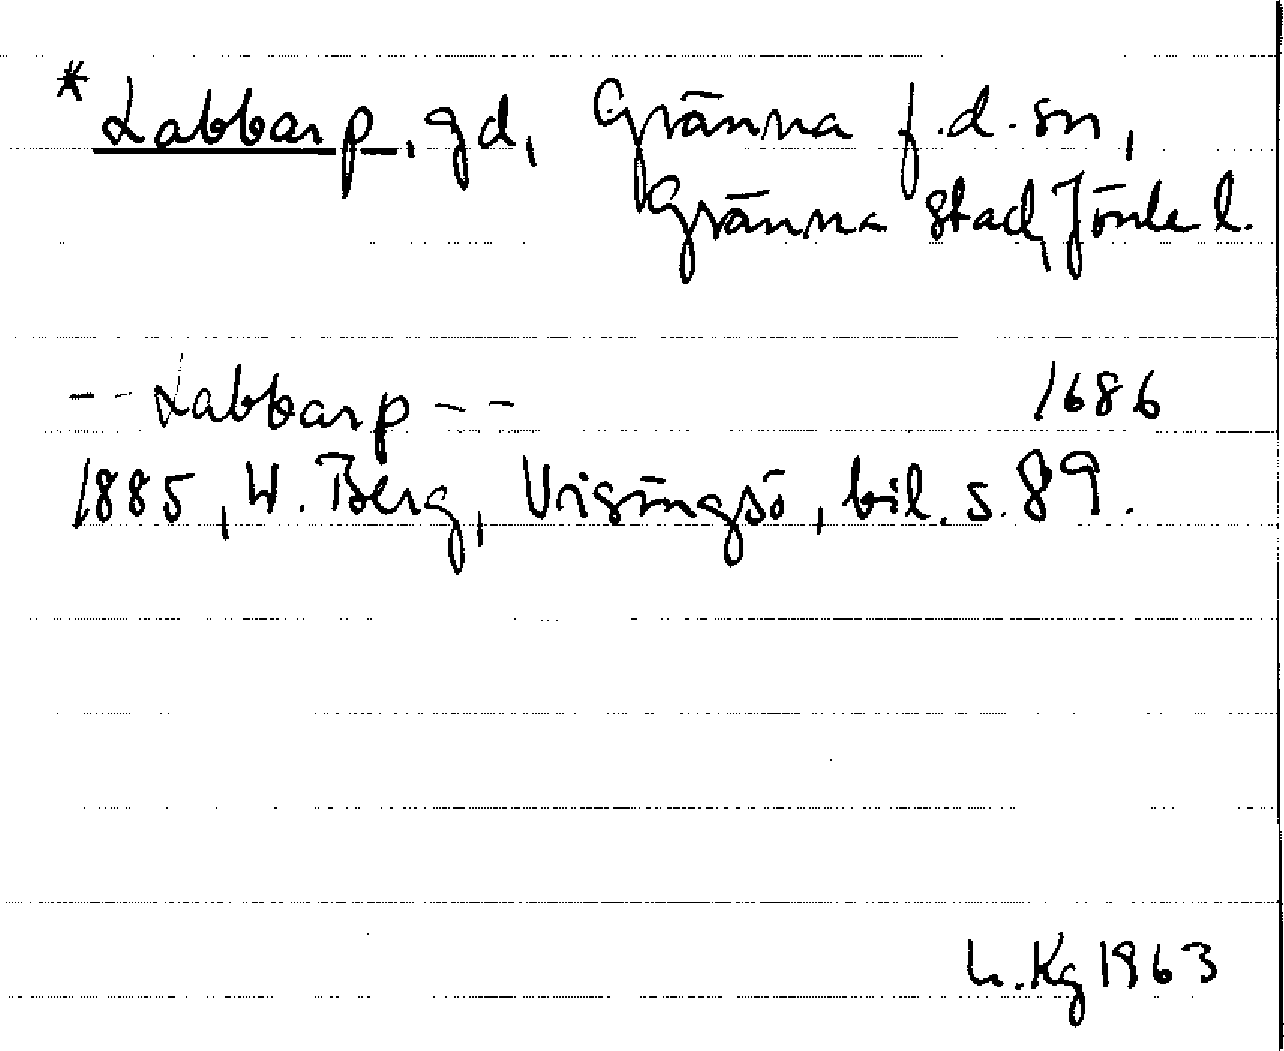 *Labbarp, gd, Gränna f.d. sn,
Gränna stad, Jönk l.
-- Labbarp -- 1686
1885, W. Berg, Visingsö, bil. s. 89.
h. Kg 1963